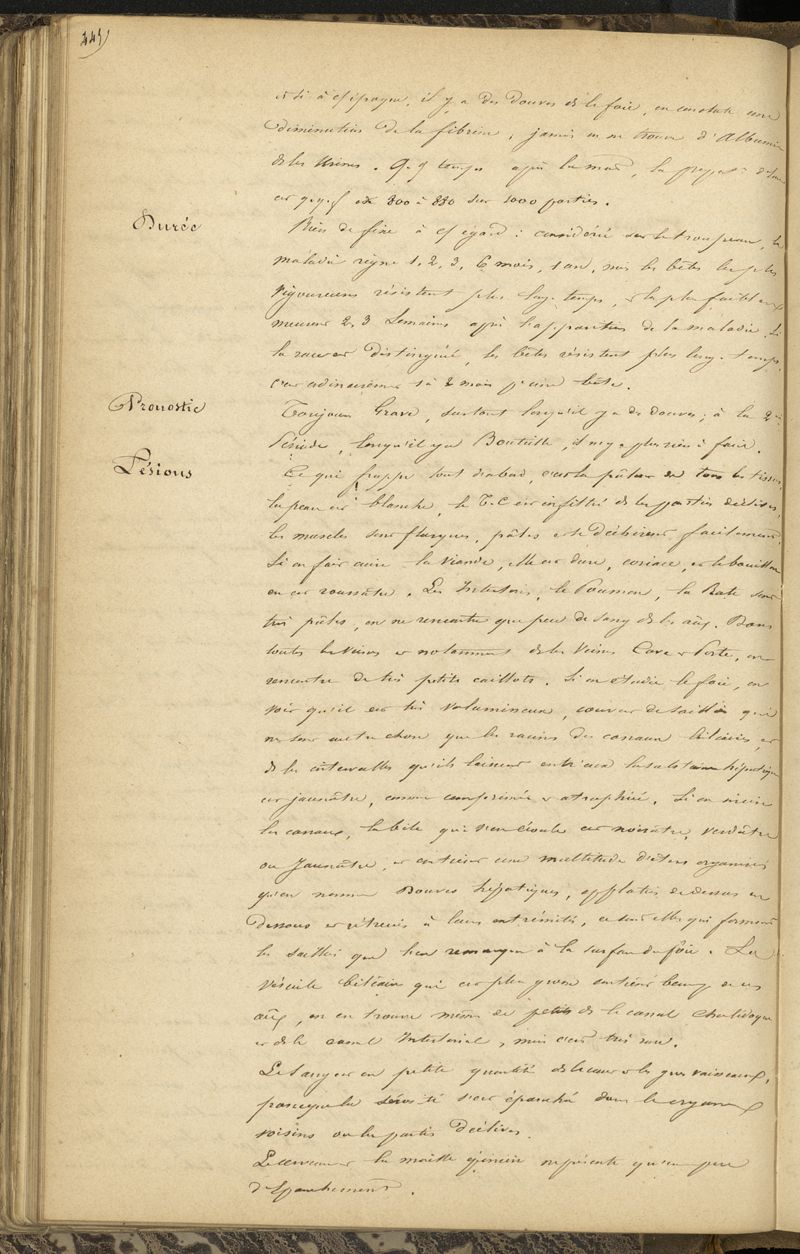 445)
et si à cj époque, il y a des Douves ds le foie, on constate une
diminution de la fibrine, jamais on ne trouve d'Albumine
ds les Urines. Q.q temps après la mort, la propor
est q.q.f de 800 à 850 sur 1000 parties.
Durée
Rien de fixe à cj égard : considérée sur le troupeau, la
maladie règne 1, 2, 3, 6 mois, 1 an, mais les bêtes les plus
vigoureuses résistent plus longtemps, et les plus faibles
meurent 2, 3 Semaines après l'apparition de la maladie. Si
la race est distinguée, les bêtes résistent plus long-temps,
c'est ordinairement 1 à 2 mois pr une bête.
Pronostic
Toujours Grave, surtout lorsqu'il y a des douves ; à la 2e
Période, lorsqu'il y a Bouteille, il n'y a plus rien à faire.
Lésions
Ce qui frappe tout d'abord, c'est la pâleur de tous les tissus,
la peau est blanche, le T.C est infiltré ds les parties déclives,
les muscles sont flasques, pâles et se déchirent facilement.
Si on fait cuire la viande, elle est dure, coriace, et le bouillon
en est roussâtre. Les Intestins, le Poumon, la Rate sont
très pâles, on ne rencontre que peu de sang ds les vaix. Dans
toutes les veines et notamment ds les Veines Cave et Porte, on
rencontre de très petits caillots. Si on étudie le foie, on
voit qu'il est très volumineux, couvert de saillies qui
ne sont autre chose que les racines des canaux biliaires, et
ds les intervalles qu'ils laissent entr'eux la substance hépatique
est jaunâtre, comme comprimée et atrophiée. Si on incise
les canaux, la bile qui s'en écoule est noirâtre, verdâtre
ou Jaunâtre, et contient une multitude d'êtres organisés
qu'on nomme Douves hépatiques, applaties de dessus en
dessous et rétrecies à leurs extrémités, ce sont elles qui forment
les saillies que l'on remarque à la surface du foie. La
Vésicule biliaire qui est plus grosse contient beaup de ces
on en trouve même de petits ds le canal Cholédoque
et ds le canal Intestinal, mais c'est très rare.
Le sang est en petite quantité ds le cœur et les gros vaisseaux,
parceque la sérosité s'est épanchée dans les organes
voisins ou les parties déclives.
Le cerveau et la moëlle épinière ne présente qu'un peu
d'Epanchement.